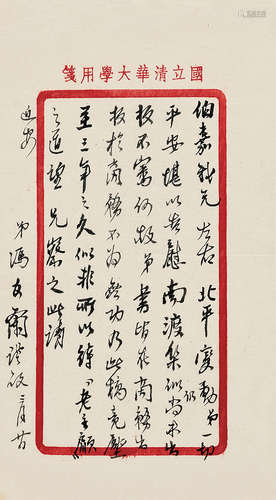 國立清華大學用箋
伯嘉我兄左右 北平變動弟一切
平安堪以告慰 南渡集似尚未出
板不審何故 弟書皆在商務出
板於商務不為無功 乃此稿竟壓
至三年之久 似非所以待「老主顧」
之道 望兄察之 此請
近安
弟馮友蘭謹啟 二月廿